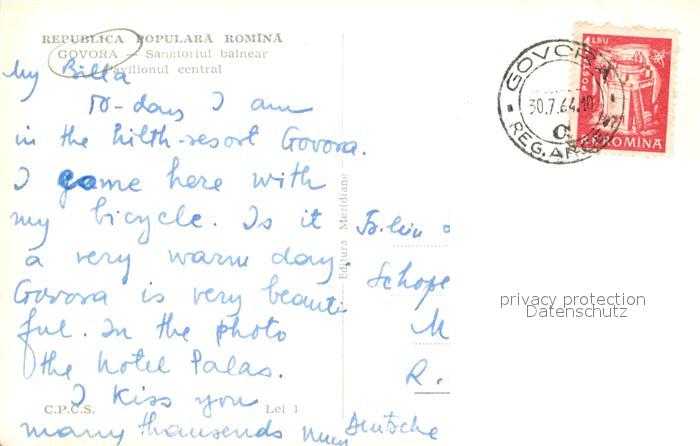 REPUBLICA POPULARĂ ROMÎNĂ
GOVORA — Sanatoriul balnear
Pavilionul central
My Billa
To-day I am
in the hilth-resort Govora.
I came here with
my bicycle. Is it
a very warm day.
Govora is very beauti
ful. In the photo
the hotel Palas.
I kiss you
many thausends
C.P.C.S. Lei 1
Editura Meridiane
Schope
M
R.
Deutsche
GOVORA
30.7.64.10
REG. AR
1 LEU
POSTA
ROMINA
privacy protection
Datenschutz